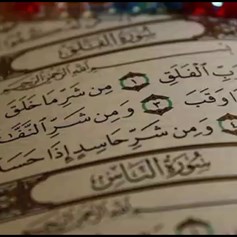 سُورَةُ الفَلَق
بِسْمِ اللَّهِ الرَّحْمَٰنِ الرَّحِيمِ
بِّ الْفَلَقِ ١ مِن شَرِّ مَا خَلَقَ
ا وَقَبَ ٣ وَمِن شَرِّ النَّفَّ
وَمِن شَرِّ حَاسِدٍ إِذَا حَسَدَ
سُورَةُ النَّاس